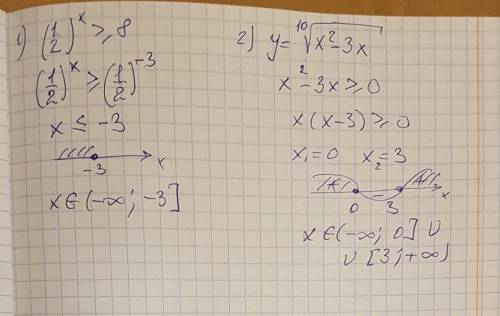 1) (1/2)^x ≥ 8
(1/2)^x ≥ (1/2)^-3
x ≤ -3
-3 x
x ∈ (-∞; -3]
2) y = ¹⁰√(x² - 3x)
x² - 3x ≥ 0
x(x-3) ≥ 0
x₁ = 0 x₂ = 3
+ - +
0 3 x
x ∈ (-∞; 0] ∪
∪ [3; +∞)